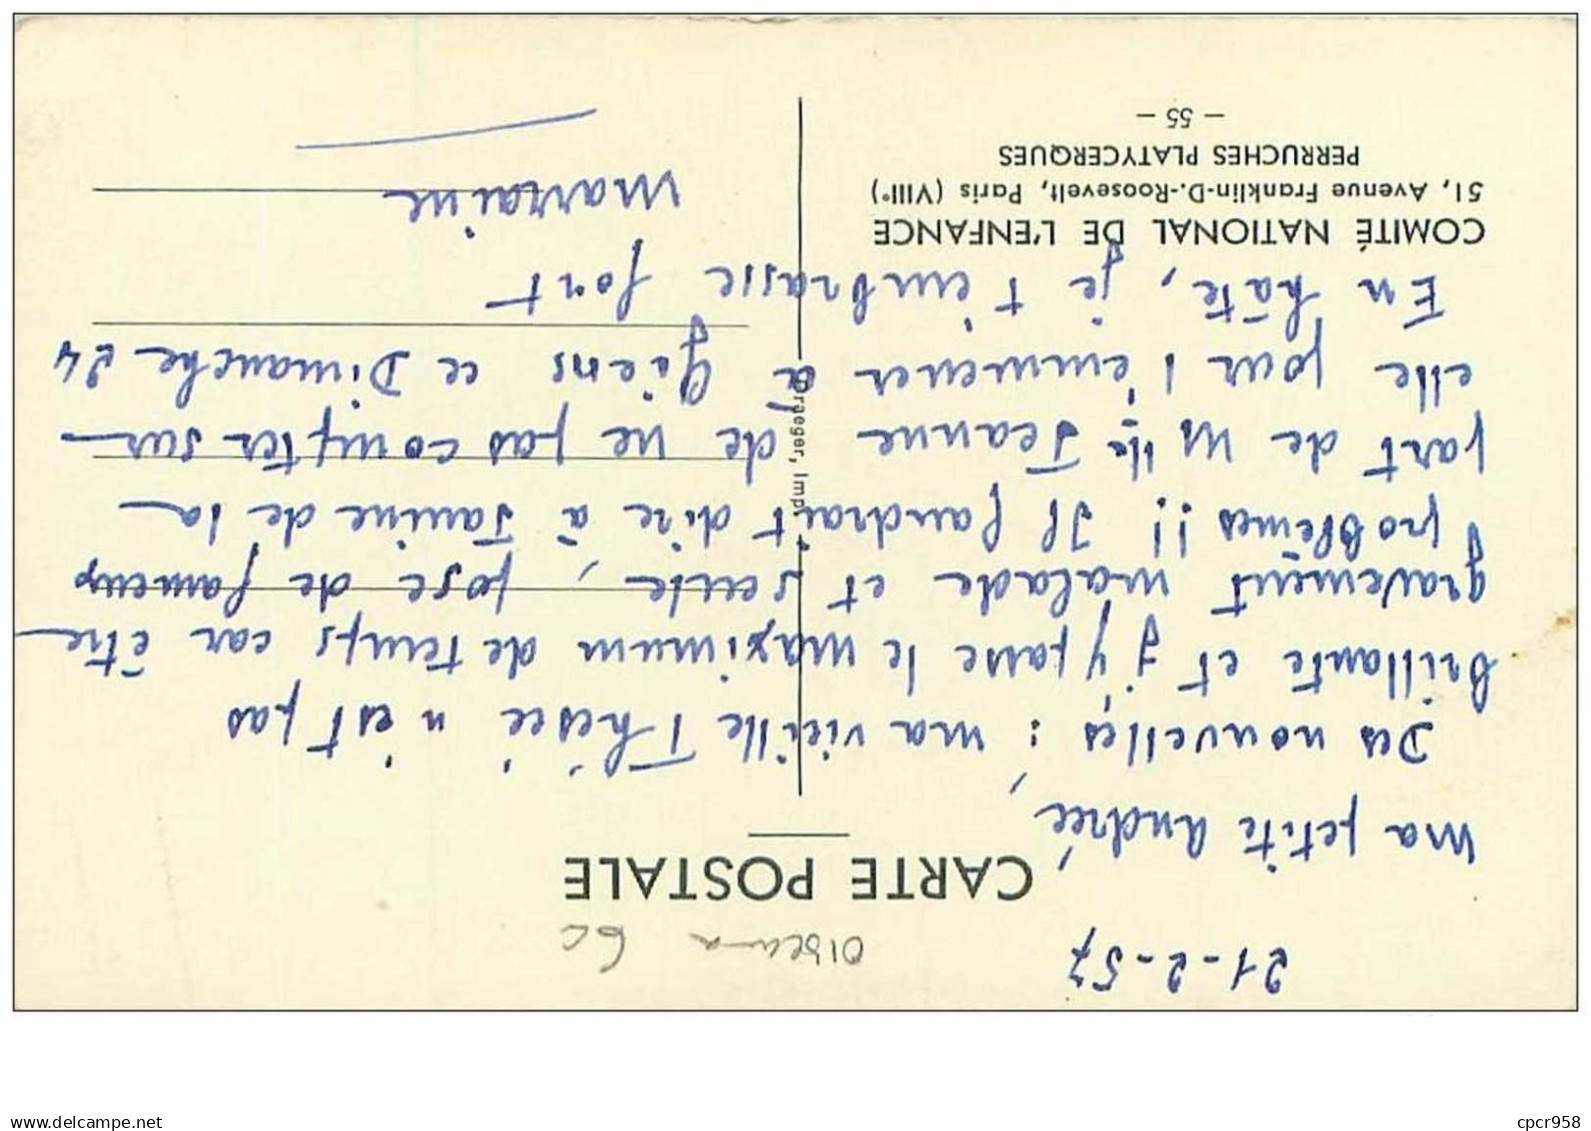 21-2-57
oiseau 6c
CARTE POSTALE
Ma petite Andrée,
Des nouvelles : ma vieille Thésée n'est pas
brillante et j'y passe le maximum de temps car être
gravement malade et seule, pose de fameux
problèmes !! Il faudrait dire à Janine de la
part de Mlle Jeanne de ne pas compter sur
elle pour l'emmener à Giens ce Dimanche 24
En hâte, je t'embrasse fort
Marraine
Draeger, Imp.
COMITÉ NATIONAL DE L'ENFANCE
51, Avenue Franklin-D.-Roosevelt, Paris (VIII°)
PERRUCHES PLATYCERQUES
- 55 -
www.delcampe.net
cpcr958